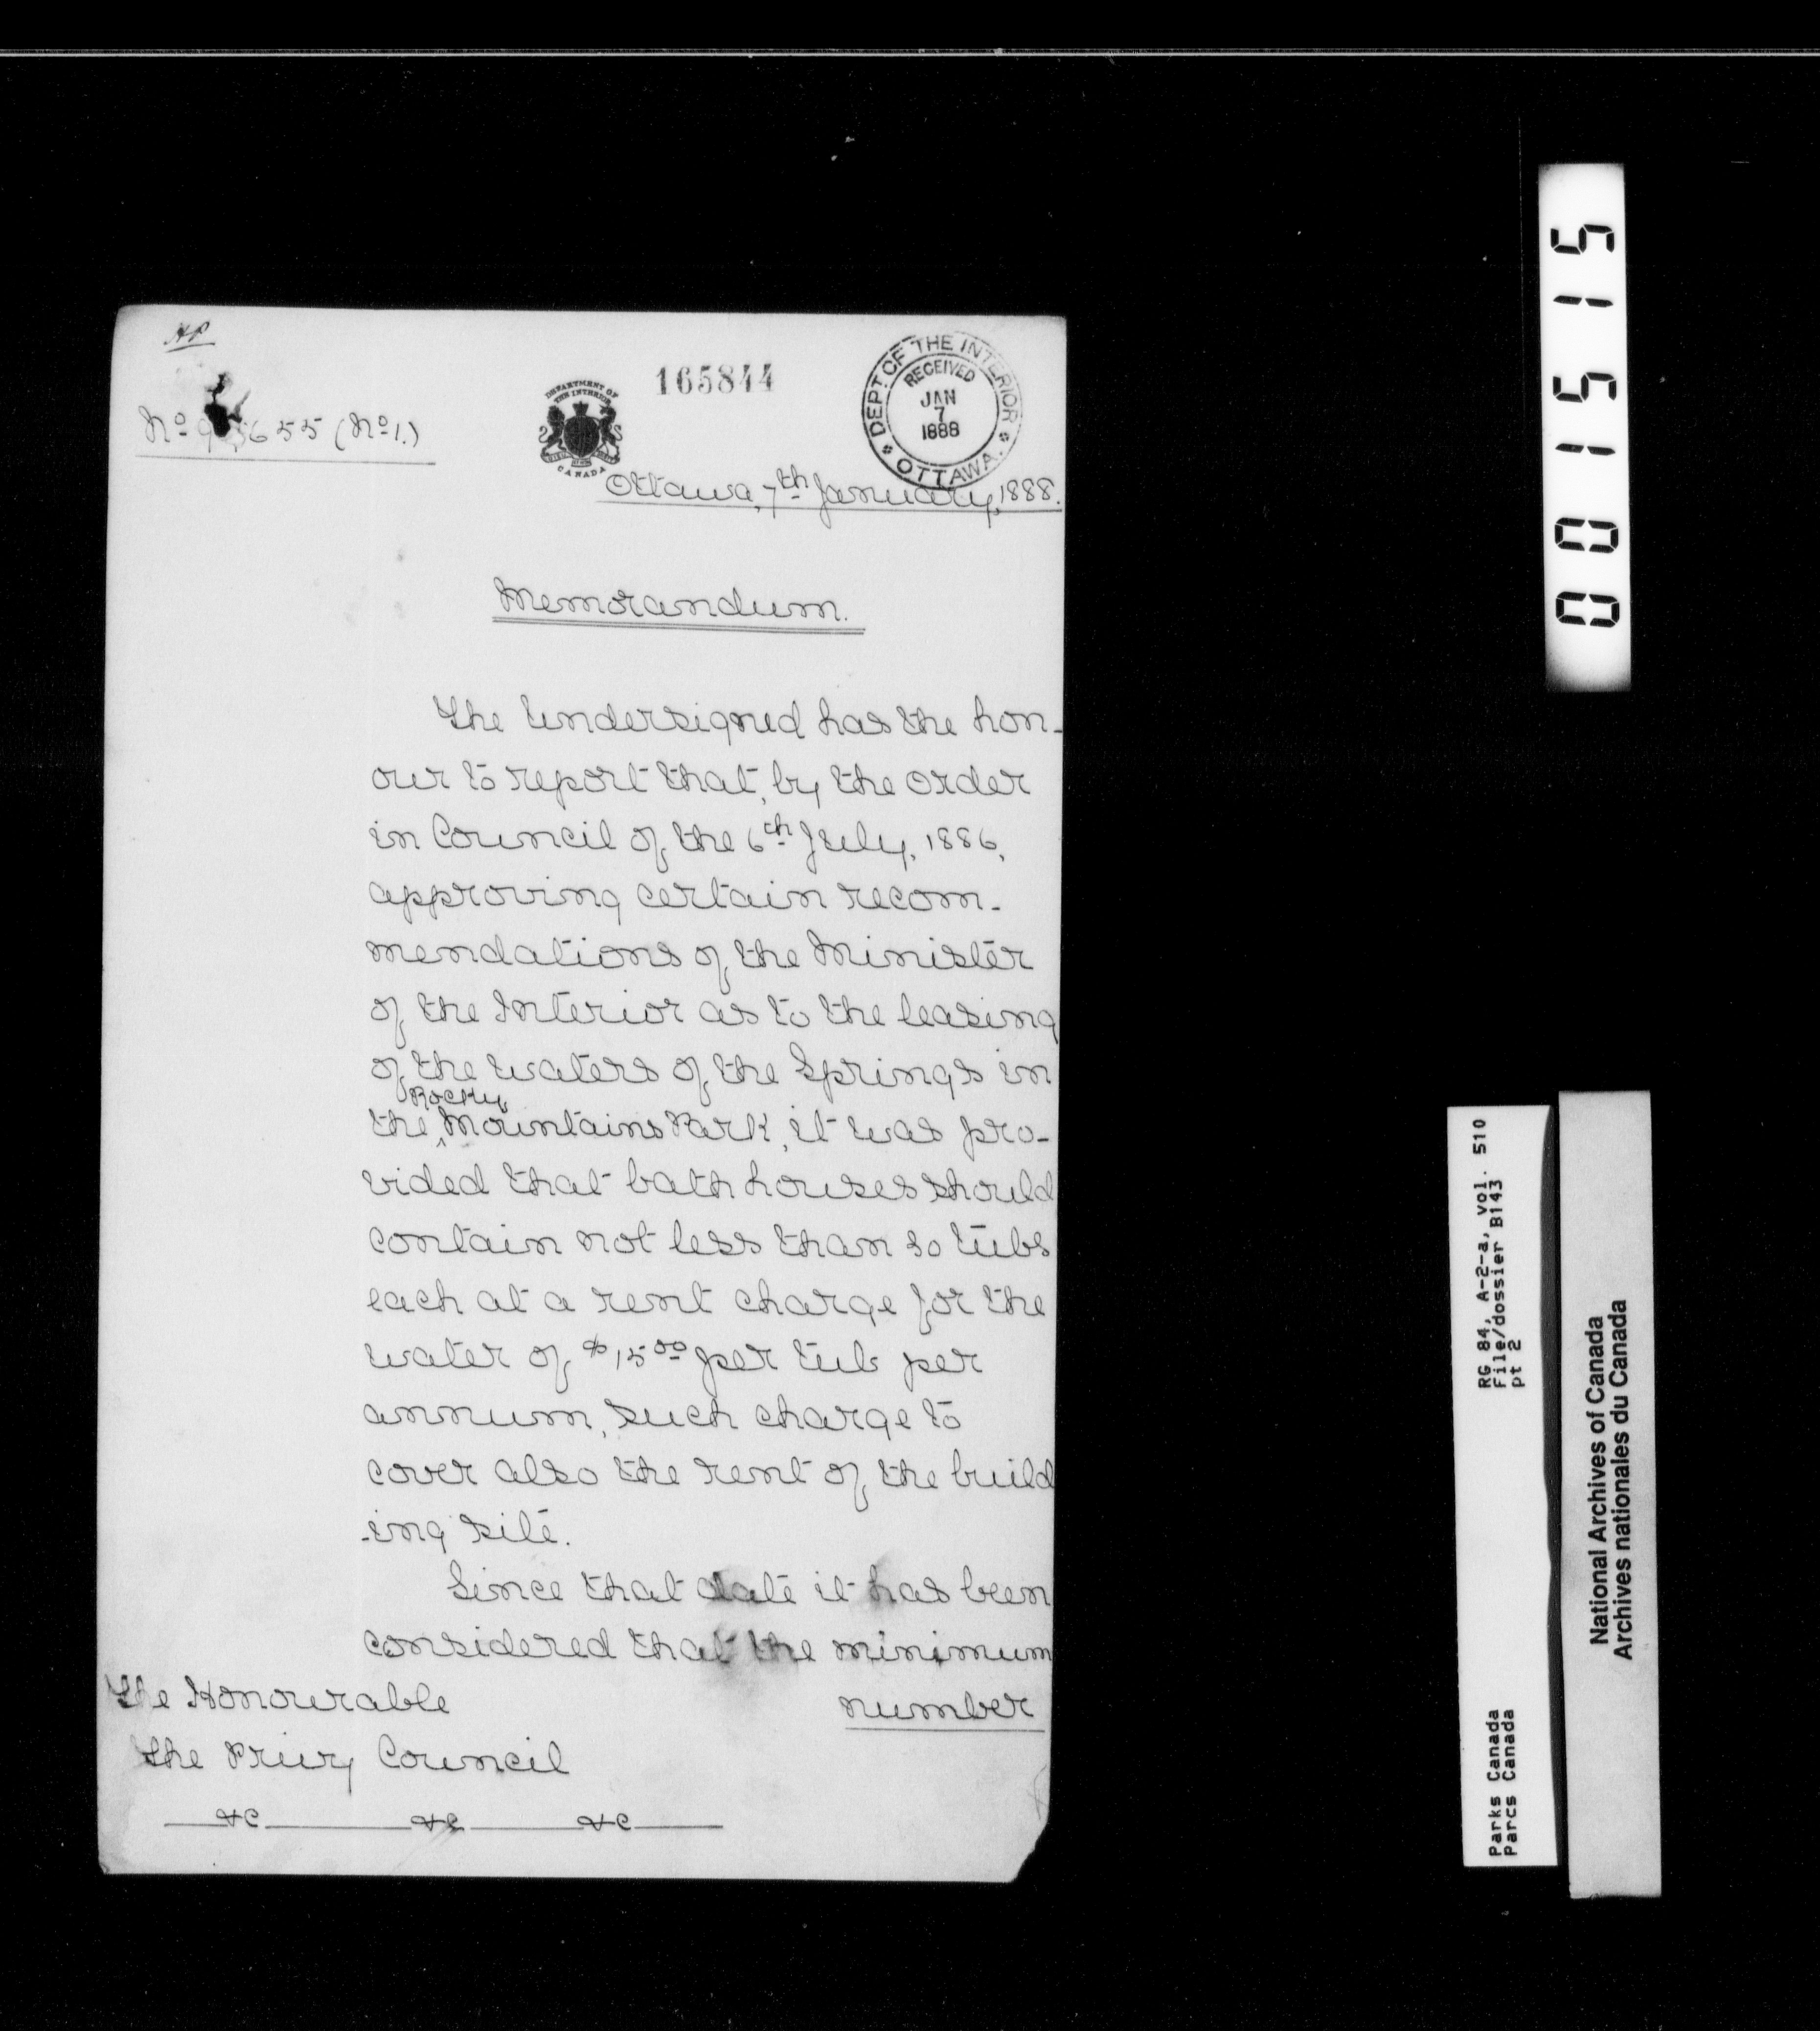 HP
165844
DEPARTMENT OF
THE INTERIOR
CANADA
DEPT OF THE INTERIOR
RECEIVED
JAN
7
1888
OTTAWA.
No 655 (No 1.)
Ottawa, 7th January, 1888.
Memorandum.
The Undersigned has the hon-
our to report that, by the Order
in Council of the 6th July, 1886,
approving certain recom-
mendations of the Minister
of the Interior as to the leasing
of the waters of the Springs in
Rocky
the ^ Mountains Park, it was pro-
vided that bath houses should
contain not less than tubs
each at a rent charge for the
water of $15 00 per tub per
annum, such charge to
cover also the rent of the build
-ing site.
Since that date it has been
considered that the minimum
number
The Honourable
the Privy Council
&c &c &c
001515
RG 84, A-2-a, vol. 510
File/dossier B143
pt 2
Parks Canada
Parcs Canada
National Archives of Canada
Archives nationales du Canada